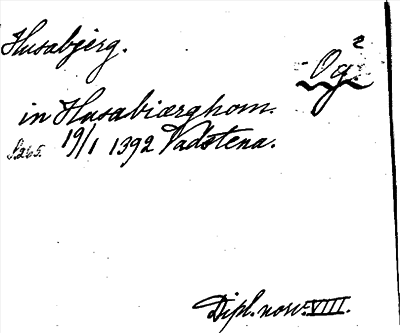 Husabjerg.
Og.²
in Husabiærghom.
S. 265. 19/1 1392 Vadstena.
Dipl. norv. VIII.